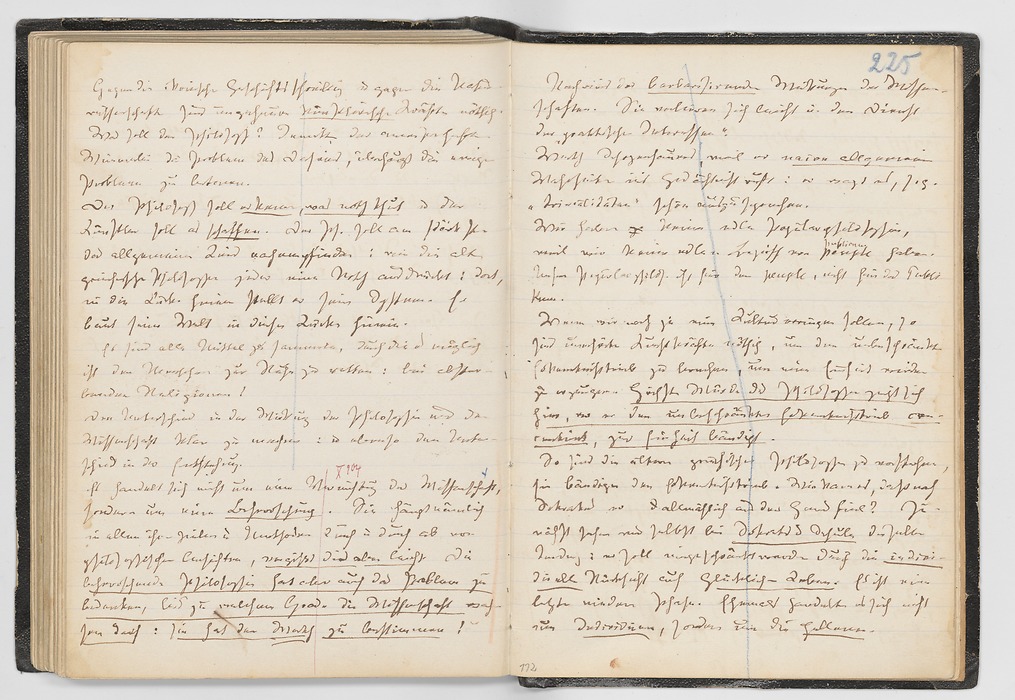 Gegen die ikonische Geschichtsschreibung u gegen die Natur-
wissenschaft sind ungeheure künstlerische Kräfte nöthig.
Was soll der Philosoph? Inmitten des ameisenhaften
Wimmelns das Problem des Daseins, überhaupt die ewigen
Probleme zu betonen.
Der Philosoph soll erkennen, was noth thut u der
Künstler soll es schaffen. Der Ph. soll am stärksten
das allgemeine Leid nachempfinden: wie die alten
griechischen Philosophen jeder eine Noth ausdrückt: dort,
in die Lücke hinein stellt er sein System. Er
baut seine Welt in diese Lücke hinein.
Es sind alle Mittel zu sammeln, durch die es möglich
ist den Menschen zur Ruhe zu retten: bei abster-
benden Religionen!
Den Unterschied in der Wirkung der Philosophie und der
Wissenschaft klar zu machen: u ebenso den Unter-
schied in der Entstehung.
Es handelt sich nicht um eine Vernichtung der Wissenschaft,
sondern um eine Beherrschung. Sie hängt nämlich
in allen ihren Zielen u Methoden durch u durch ab von
philosophischen Ansichten, vergißt dies aber leicht. Die
beherrschende Philosophie hat aber auch das Problem zu
bedenken, bis zu welchem Grade die Wissenschaft wach-
sen darf: sie hat den Werth zu bestimmen!
112
225
Nachweis der barbarisirenden Wirkungen der Wissen-
schaften. Sie verlieren sich leicht in den Dienst
der „praktischen Interessen“.
Werth Schopenhauers, weil er naive allgemeine
Wahrheiten ins Gedächtniß ruft: er wagt es, sog.
„Trivialitäten“ schön auszusprechen.
Wir haben keine edle Popularphilosophie,
weil wir keinen edlen Begriff von peuple publicum haben.
Unsere Popularphilos. ist für den peuple, nicht für das Publi-
kum.
Wenn wir noch je eine Kultur erringen sollen, so
sind unerhörte Kunstkräfte nöthig, um den unbeschränkten
Erkenntnißtrieb zu brechen, um eine Einheit wieder
zu erzeugen. Höchste Würde des Philosophen zeigt sich
hier, wo er den unbeschränkten Erkenntnißtrieb con-
centrirt, zur Einheit bändigt.
So sind die älteren griechischen Philosophen zu verstehen,
sie bändigen den Erkenntnißtrieb. Wie kam es, daß nach
Sokrates er allmählich aus der Hand fiel? Zu-
nächst sehen wir selbst bei Sokrates u Schule dieselbe
Tendenz: er soll eingeschränkt werden durch die indivi-
duelle Rücksicht auf glücklich-Leben. Es ist eine
letzte niedere Phase. Ehemals handelte es sich nicht
um Individuen, sondern um die Hellenen.